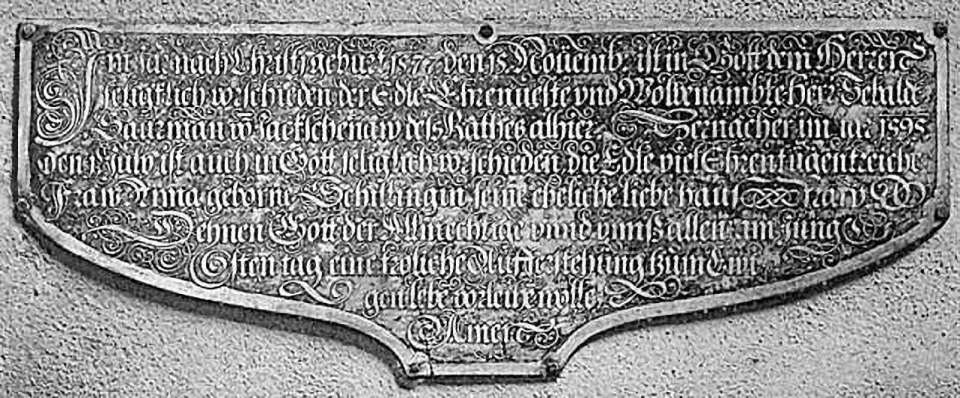 Im Jar nach Christi gebur 1577 den 15. Nouemb: ist in Gott dem Herren
seligklich vorschieden der Edle Ehrenueste vnd Wolbenambte Herr Schilde
Saurman vō Jackschenaw des Rathes alhier. Hernacher im iar 1595
den July ist auch in Gott seliglich vorschieden die Edle viel Ehrentugentreiche
Fraw Anna geborne Schilhangin seine eheliche liebe hauß fraw
Dehnen Gott der Allmechtige vnnd vnnß allen am Jüng
sten tag eine froliche Aufferstehung zum Ewi
gen lebē vorleihē wolle
Amen